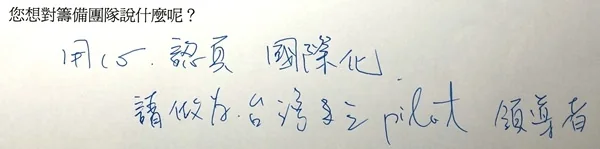 您想對籌備團隊說什麼呢?
用心.認真 國際化.
請做為台灣 pilot 領導者